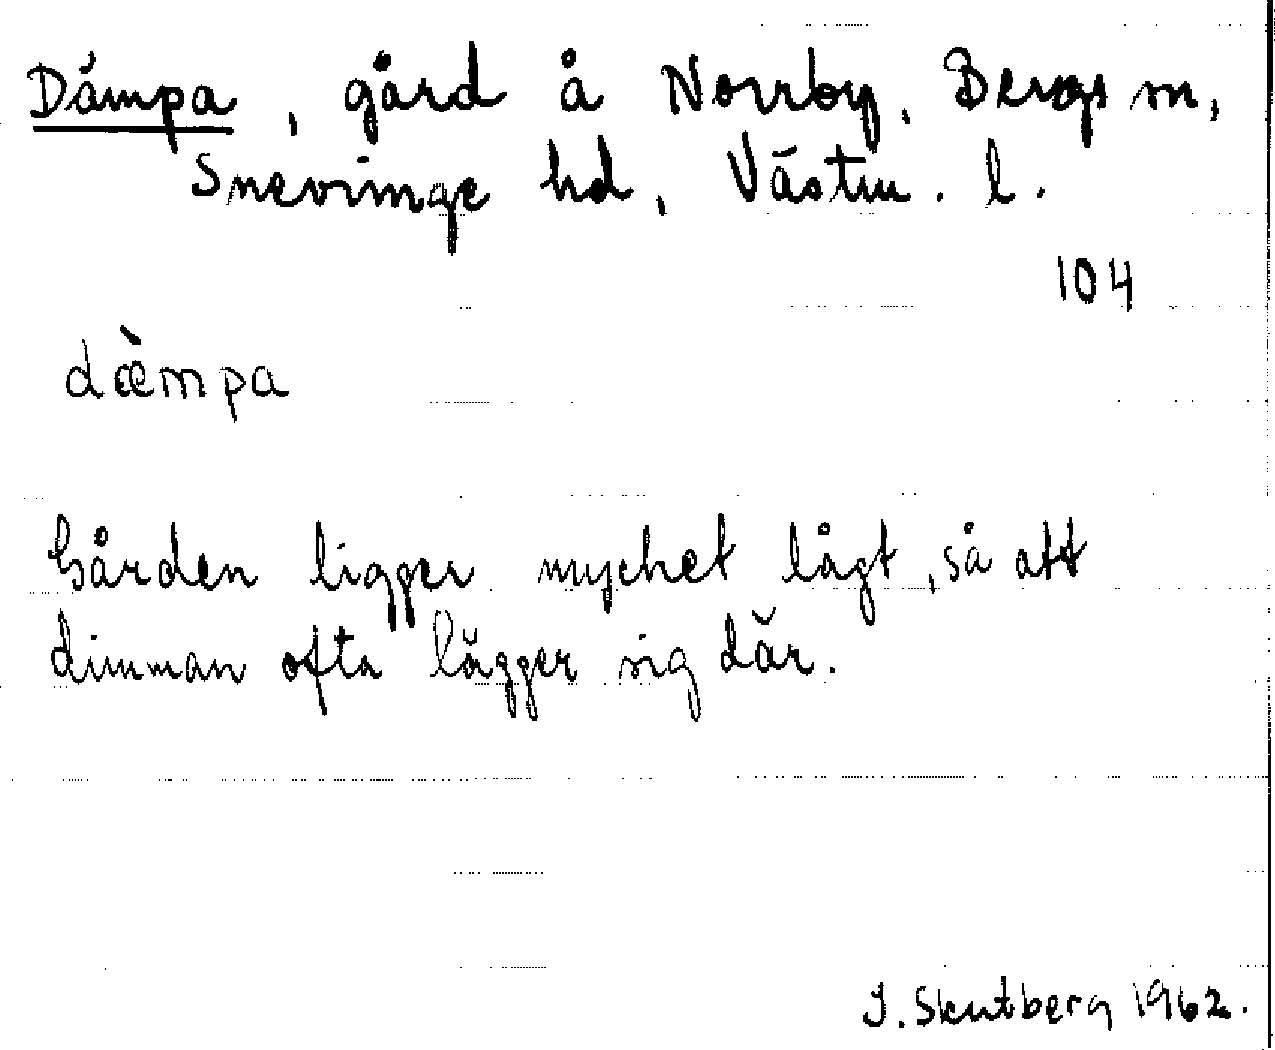 Dämpa, gård å Norrby, Bergs sn,
Snevringe hd, Västm. l.
104
dæ̀mpa
Gården ligger mycket lågt, så att
dimman ofta lägger sig där.
J. Skutberg 1962.